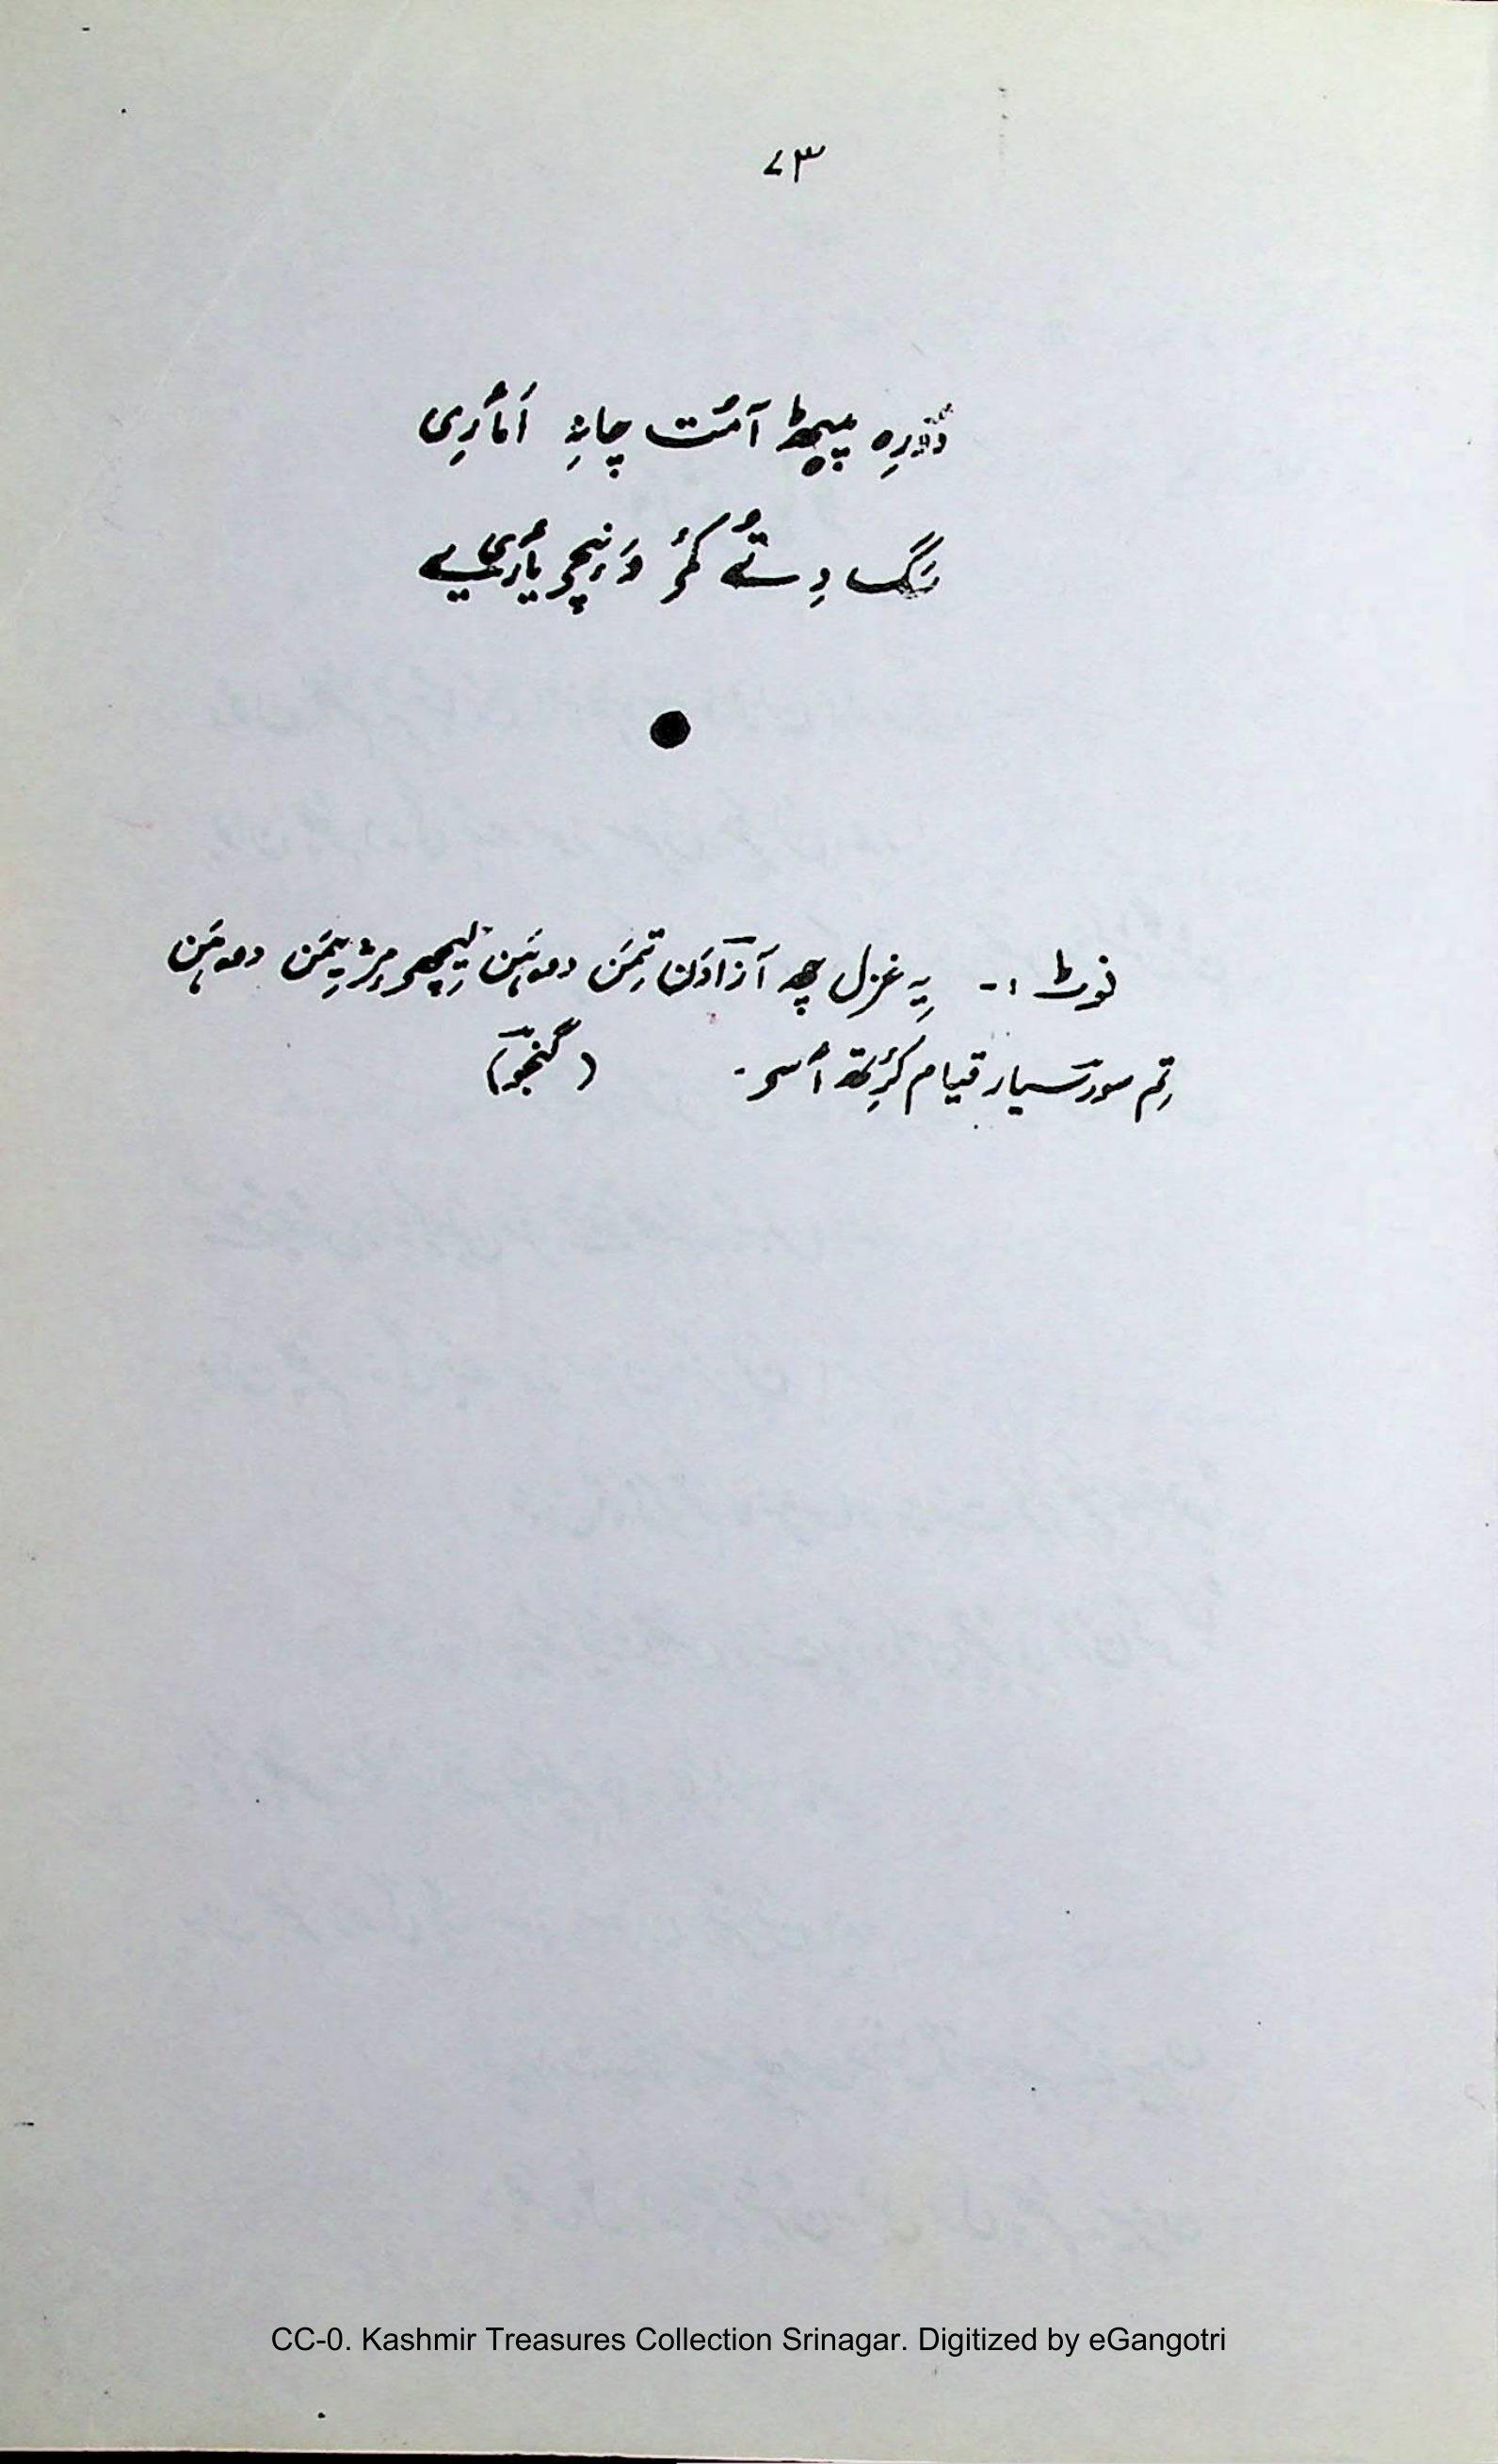 ۷۳
دۆرِہ پیٹھ آمُت چانہِ اَمارِی
سَگ دِتُے کٔمۍ وَنیچہِ یأرِیے
●
نوٹ :- یہِ غزل چھ آزادَن تِمَن دۄہَن لیٖچھمٕژ یِمَن دۄہَن
تِم سۄرسیار قیام کٔرِتھ أسۍ۔ (گنجوٗ)
CC-0. Kashmir Treasures Collection Srinagar. Digitized by eGangotri